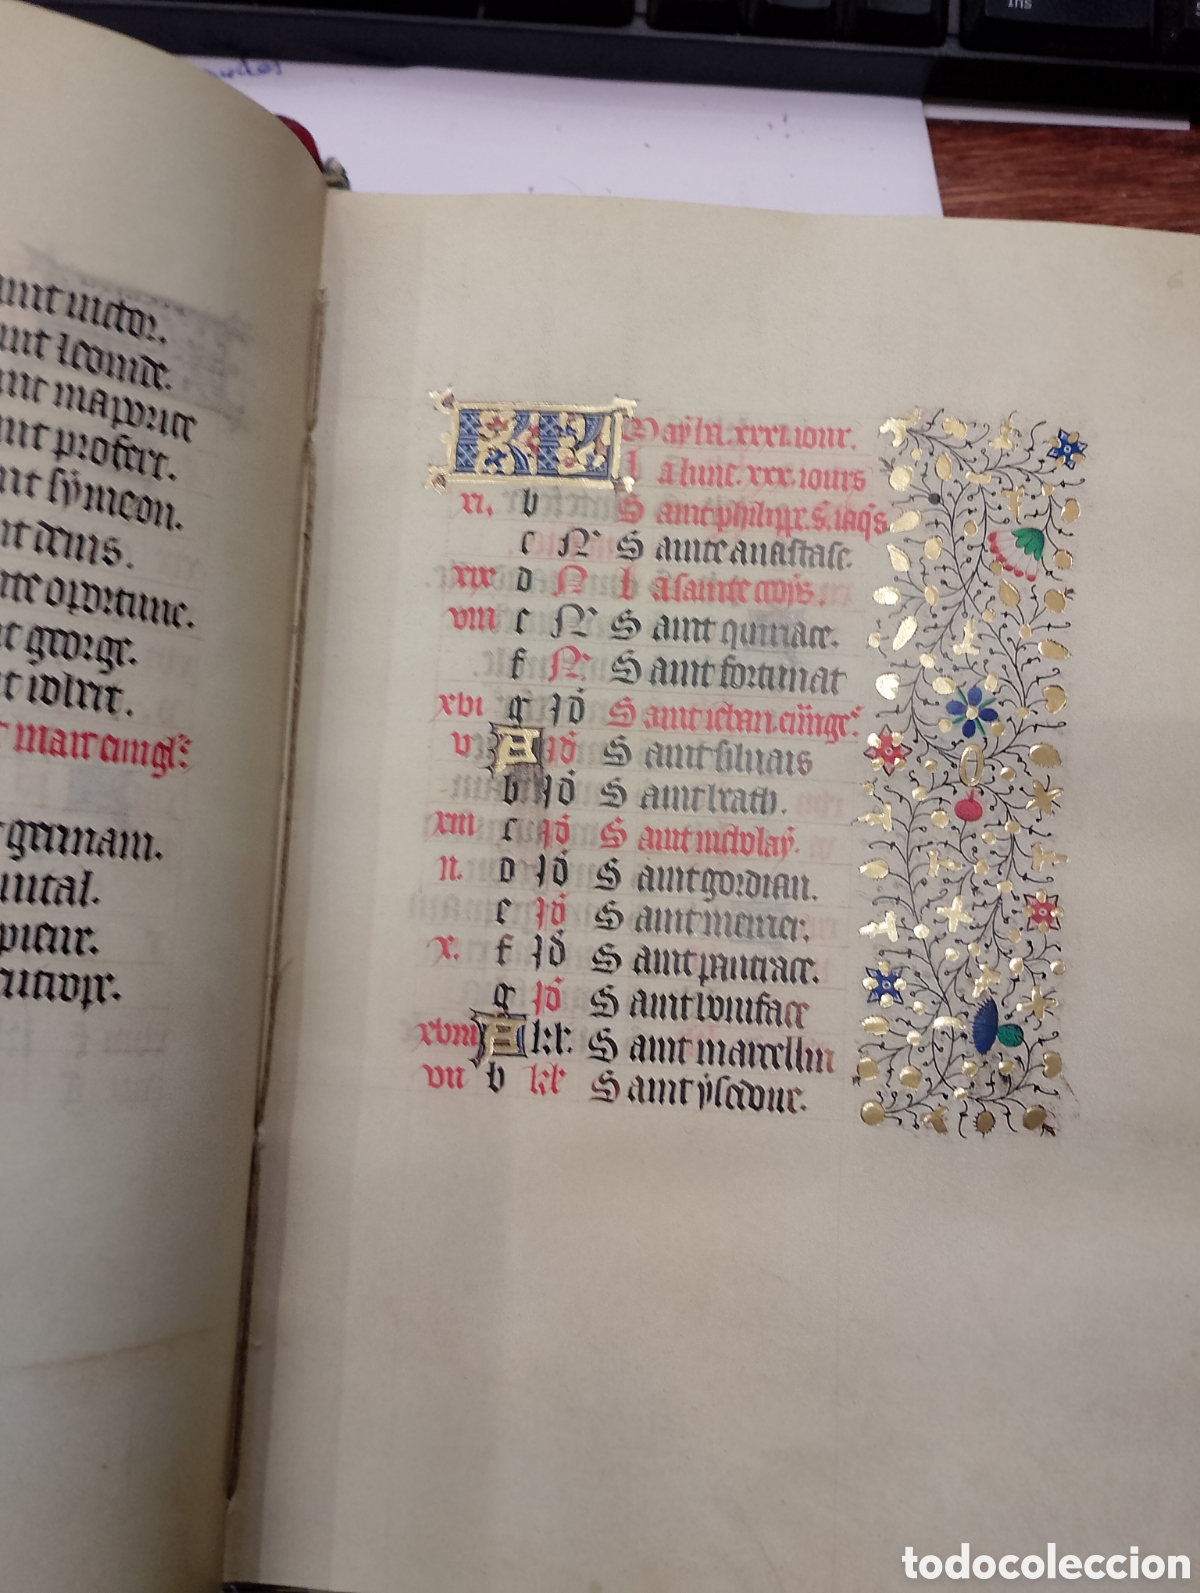 aint victor.
aint leonide.
aint maporice
nt profeit.
nt sẏmeon.
nt denis.
nte oportune.
nt george.
t wlrit.
t marc euuangl
t germain.
uital.
pieur.
cutrope.
KL Maẏ ha .xxxi. iour.
La lune .xxx. iours
xi. b Saint philippe. s. iaqs
c N Sainte anastase.
xix d N La sainte crois.
viii e N Saint quiriace.
f N Saint fortunat
xvi g id Saint iehan euuãge
v A id Saint siluais
b id Saint beath.
xiii c id Saint nicolaẏ.
ii. d id Saint gordian.
e id Saint memer.
x. f id Saint panciace.
g id Saint boniface
xviii A kl. Saint marcellin
vii b kl Saint ẏsedour.
6
Ins
todocoleccion